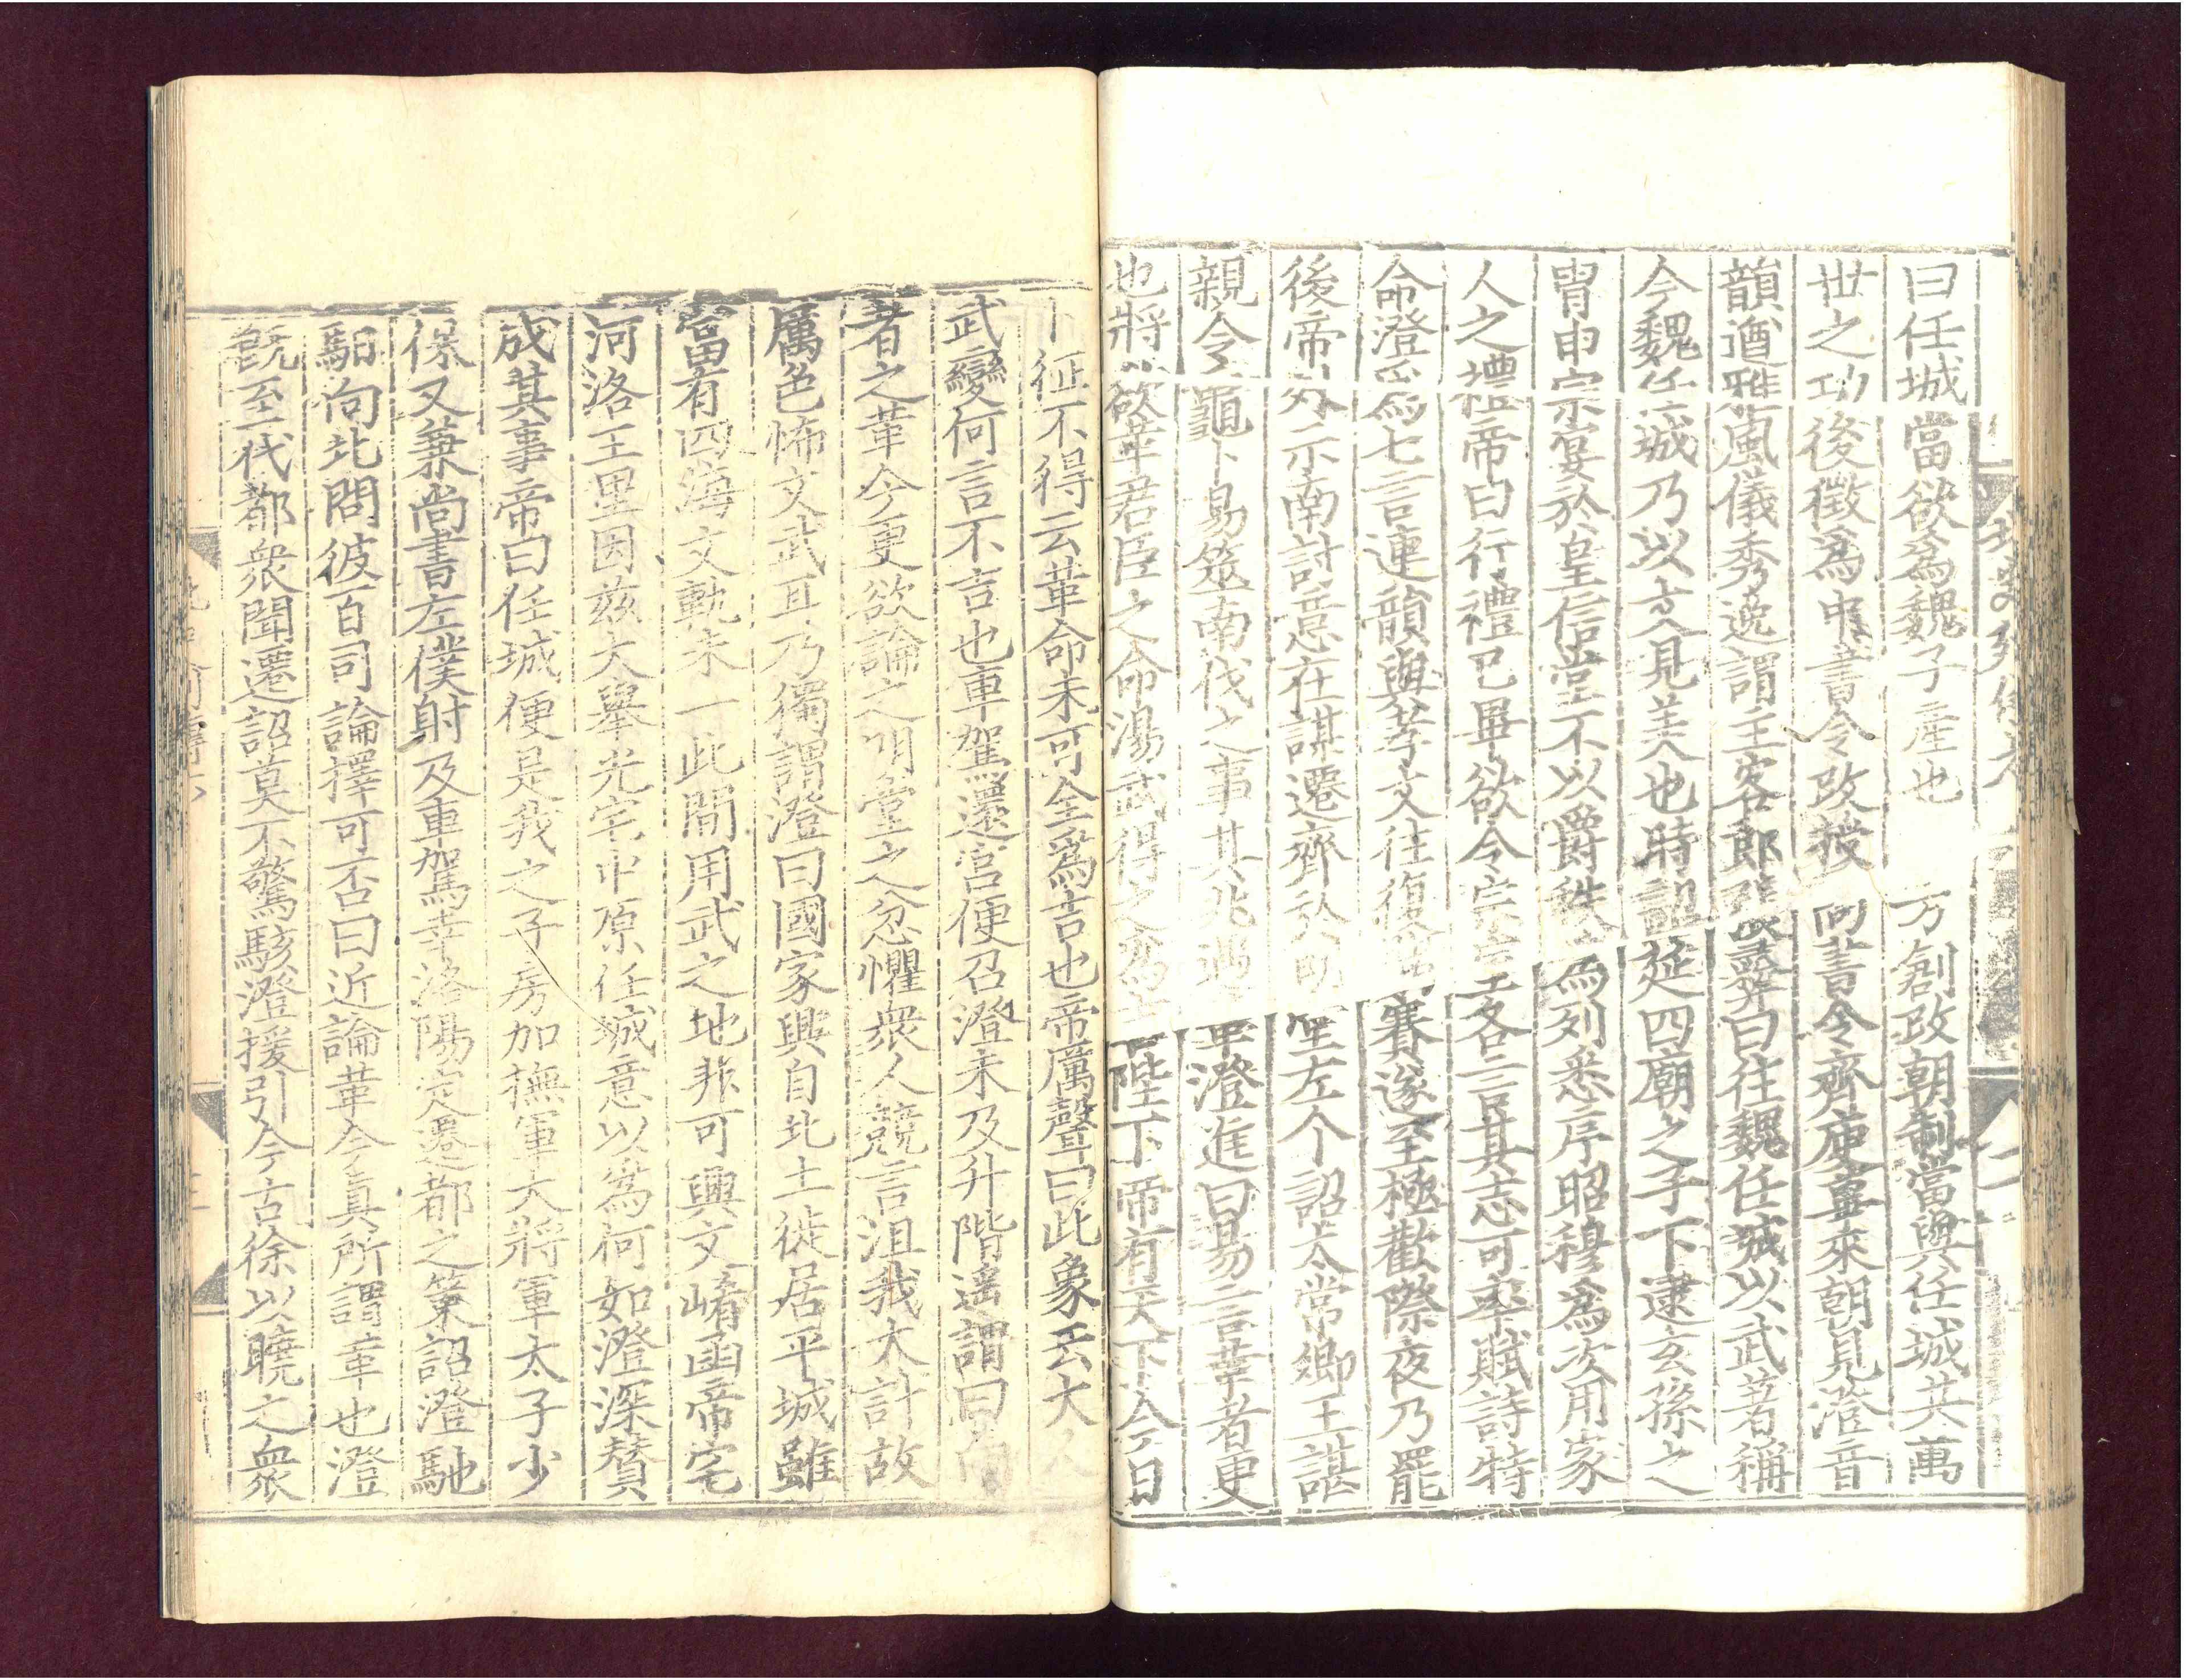 曰任城當欲爲魏子産也方創改朝制當與任城共萬
世之功後徵爲中書令改授尚書令齊庾蓽來朝見澄音
韻遒雅風儀秀逸謂主客郎張彝曰往魏任城以武著稱
今魏任城乃以文見美也時詔延四廟之子下逮玄孫之
冑申宗宴於皇信堂不以爵秩爲列悉序昭穆爲次用家
人之禮帝曰行禮已畢欲令宗室各言其志可率賦詩特
命澄爲七言連韻與孝文往復賭賽遂至極歡際夜乃罷
後帝外示南討意在謀遷齊於明堂左个詔太常卿王諶
親令龜卜易筮南伐之事其兆遇革澄進曰易言革者更
也將欲革君臣之命湯武得之爲吉陛下帝有天下今日
卜征不得云革命未可全爲吉也帝厲聲曰此象云大人
武變何言不吉也車駕還宮便召澄未及升階遙謂曰向
者之革今更欲論之明堂之忿懼衆人競言沮我大計故
厲色怖文武耳乃獨謂澄曰國家興自北土徙居平城雖
富有四海文軌未一此間用武之地非可興文崤函帝宅
河洛王里因茲大舉光宅中原任城意以爲何如澄深賛
成其事帝曰任城便是我之子房加撫軍大將軍太子少
保又兼尚書左僕射及車駕幸洛陽定遷都之策詔澄馳
馹向北問彼百司論擇可否曰近論革今真所謂革也澄
旣至代都衆聞遷詔莫不驚駭澄援引今古徐以曉之衆